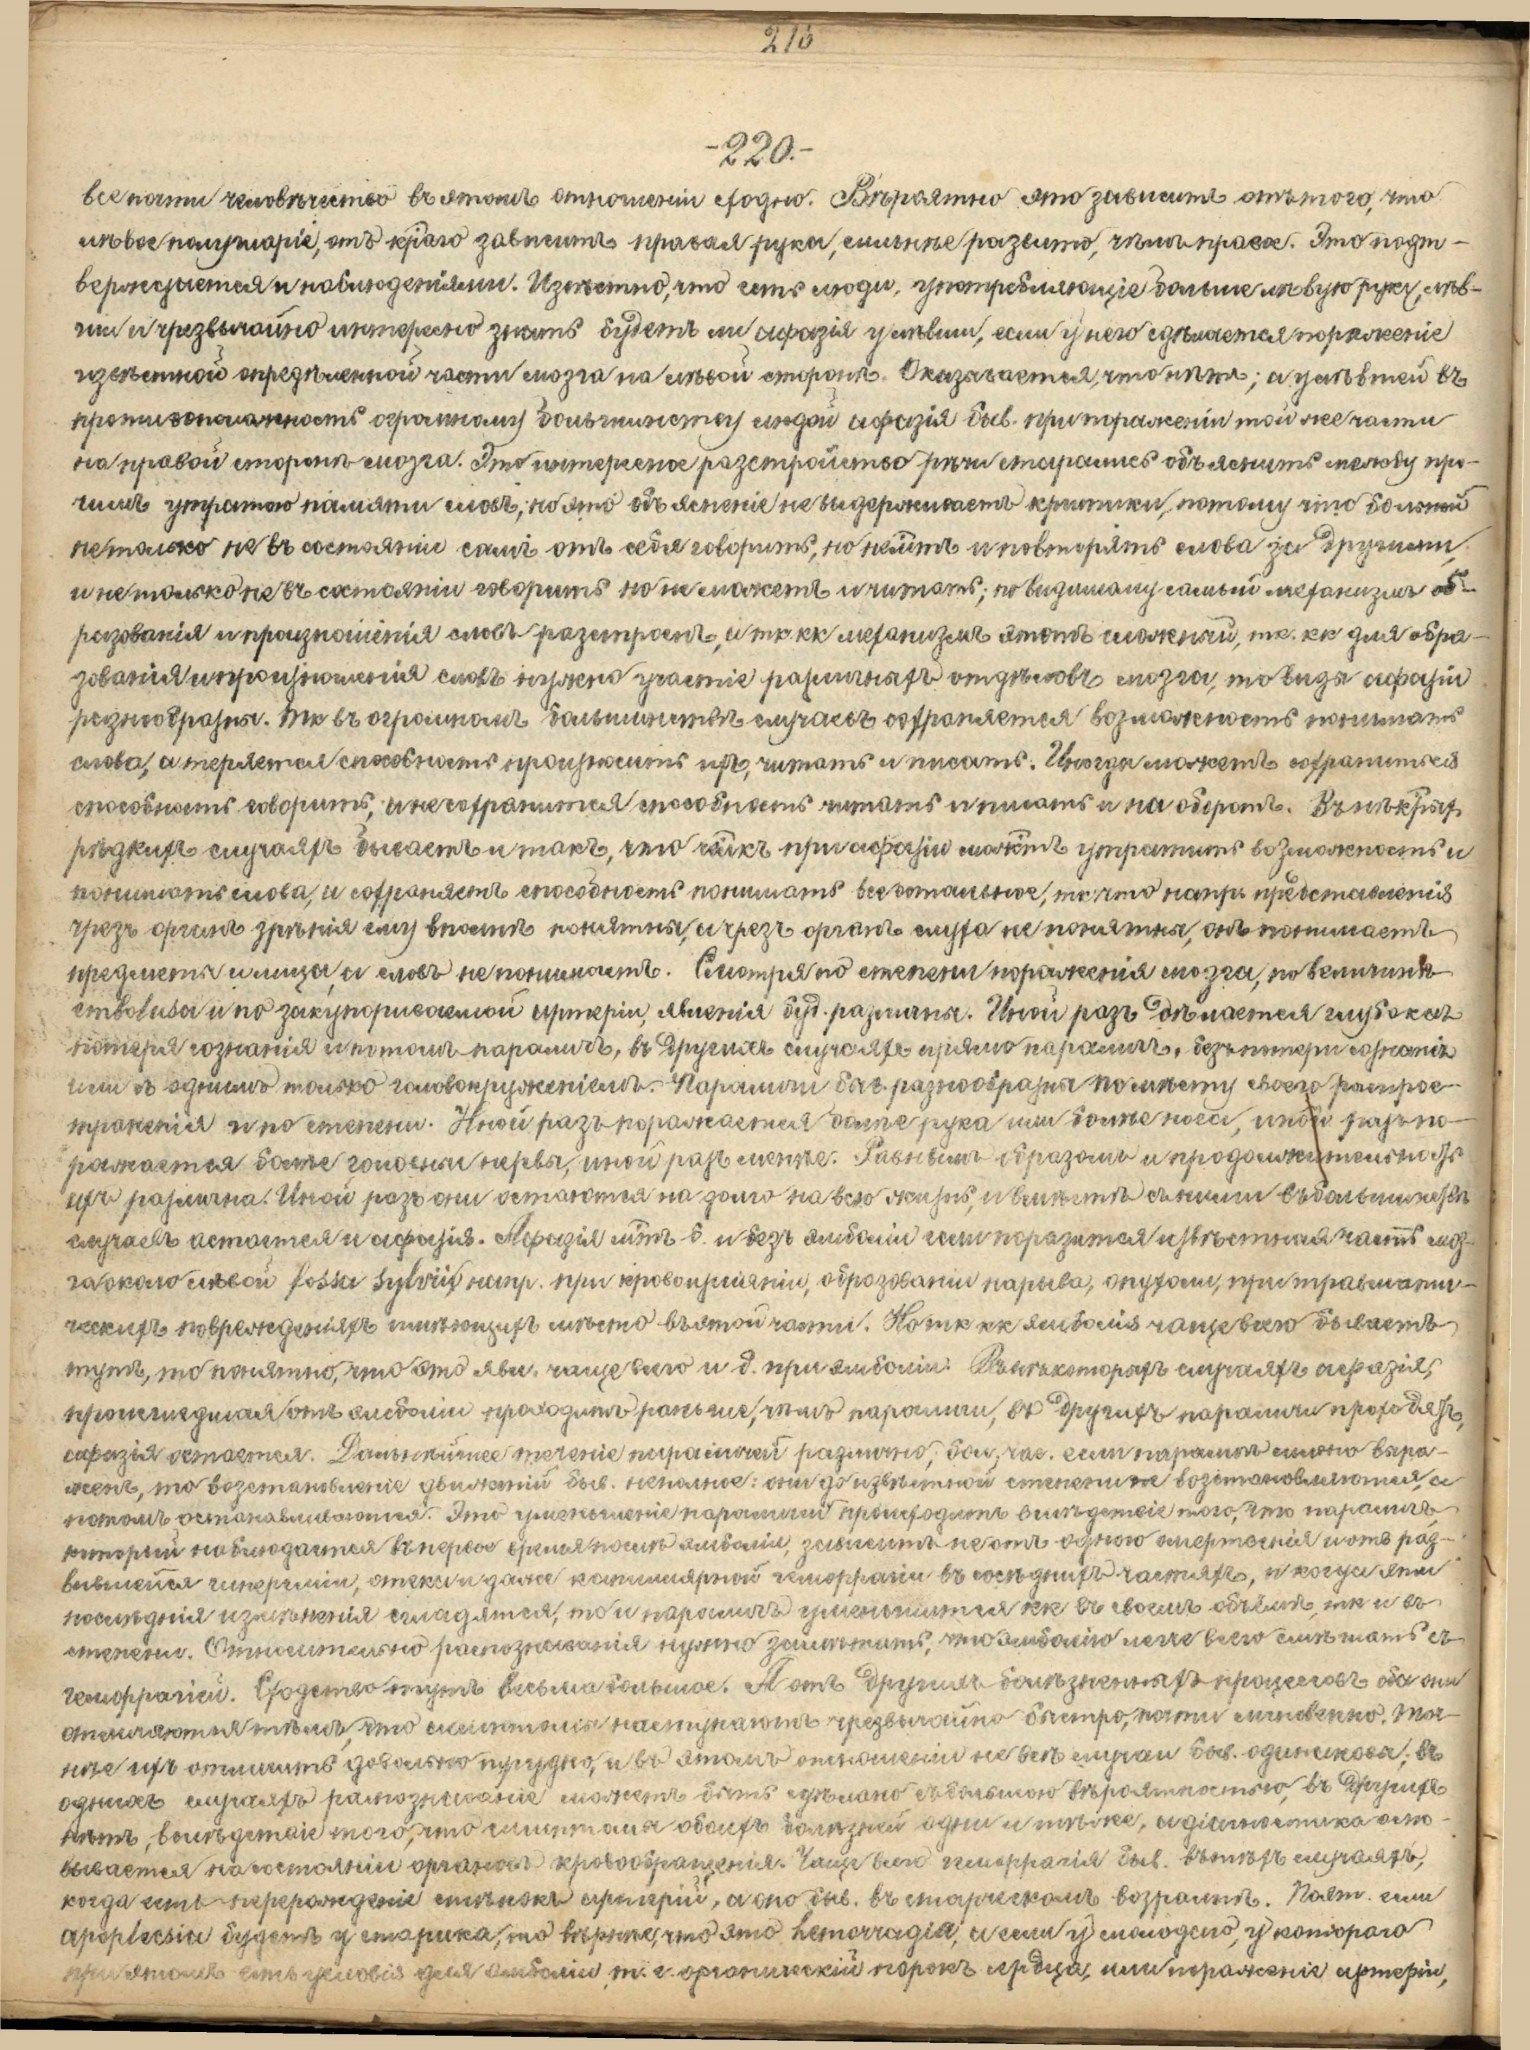 216
-220.-
все почти человѣчество въ этомъ отношеніи сходно. Вѣроятно это зависитъ отъ того, что
лѣвое полушаріе, отъ кѣраго зависитъ правая рука, сильнѣе развито, чѣмъ правое. Это подт-
верждается и наблюденіями. Извѣстно, что есть люди, употребляющіе больше лѣвую руку, лѣв-
ши и чрезвычайно интересно знать будетъ ли афазія у лѣвши, если у него сдѣлается пораженіе
извѣстной опредѣленной части мозга на лѣвой сторонѣ. Оказывается, что нѣтъ; а у лѣвшей въ
противоположность огромному большинству людей афазія быв. при пораженіи той же части
на правой сторонѣ мозга. Это интересное разстройство рѣчи старались объяснить между про-
чимъ утратою памяти словъ; но это объясненіе не выдерживаетъ критики, потому что больной
не только не въ состояніи самъ отъ себя говорить, но не мжтъ и повторять слова за другими,
и не только не въ состояніи говорить но не можетъ и читать; по видимому самый механизмъ об-
разованія и произношенія словъ разстроенъ, и тк. кк механизмъ этотъ сложный, тк. кк для обра-
зованія и произношенія словъ нужно участіе различныхъ отдѣловъ мозга, то виды афазіи
разнообразны. Тк въ огромномъ большинствѣ случаевъ сохраняется возможность понимать
слова, а теряется способность произносить ихъ, читать и писать. Иногда можетъ сохраниться
способность говорить, и не сохранится способность читать и писать и на оборотъ. Въ нѣкрыхъ
рѣдкихъ случаяхъ бываетъ и такъ, что члкъ при афазіи можетъ утратить возможность и
понимать слова, и сохраняетъ способность понимать все остальное, тк что напр. представленія
чрезъ органъ зрѣнія ему вполнѣ понятны, а чрезъ органъ слуха не понятны, онъ понимаетъ
предметы и лица, а словъ не понимаетъ. Смотря по степени пораженія мозга, по величинѣ
embolusa и по закупориваемой артеріи, явленія буд. различны. Иной разъ дѣлается глубокая
потеря сознанія и потомъ параличъ, въ другихъ случаяхъ прямо параличъ, безъ потери сознанія
или съ однимъ только головокруженіемъ. Параличи быв. разнообразны по мѣсту своего распрос-
траненія и по степени. Иной разъ поражается болѣе рука или болѣе нога, иной разъ по-
ражается болѣе головные нервы, иной разъ менѣе. Равнымъ образомъ и продолжительность
ихъ различна. Иной разъ они остаются на долго на всю жизнь, и вмѣстѣ съ ними въ большинствѣ
случаевъ остается и афазія. Афазія мжтъ б. и безъ эмболіи если поразится извѣстная часть моз-
га около лѣвой fossa Sylvii, напр. при кровоизліяніи, образованіи нарыва, опухоли, при травмати-
ческихъ поврежденіяхъ имѣющихъ мѣсто въ этой части. Но тк кк эмболія чаще всего бываетъ
тутъ, то понятно, что это явл. чаще всего и б. при эмболіи. Въ нѣкоторыхъ случаяхъ афазія,
происшедшая отъ эмболіи проходитъ раньше, чѣмъ параличи, въ другихъ параличи проходятъ,
а афазія остается. Дальнѣйшее теченіе параличей различно; бол. час. если параличъ сильно выра-
женъ, то возстановленіе движеній быв. неполное: они до извѣстной степени возстановляются, а
потомъ останавливаются. Это уменьшеніе параличей происходитъ вслѣдствіе того, что параличъ,
который наблюдается въ первое время послѣ эмболіи, зависитъ не отъ одного омертвенія и отъ раз-
вившейся гипереміи, отека и даже капиллярной гемаррагіи въ сосѣднихъ частяхъ, и когда эти
послѣднія измѣненія сгладятся, то и параличъ уменьшится кк въ своемъ объемѣ, тк и въ
степени. Относительно распознаванія нужно замѣтить, что эмболію легче всего смѣшать съ
гемаррагіей. Сходство тутъ весьма большое. А отъ другихъ болѣзненныхъ процессовъ оба они
отличаются тѣмъ, что симптомы наступаютъ чрезвычайно быстро, почти мгновенно. Точ-
нѣе ихъ отличить довольно трудно, и въ этомъ отношеніи не всѣ случаи быв. одинаковы; въ
однихъ случаяхъ распознаваніе можетъ быть сдѣлано съ большою вѣроятностью, въ другихъ
нѣтъ, вслѣдствіе того, что симптомы обоихъ болѣзней одни и тѣ же, а діагностика осно-
вывается на состояніи органовъ кровообращенія. Чаще всего гемаррагія быв. въ тѣхъ случаяхъ,
когда есть перерожденіе стѣнокъ артерій, а оно быв. въ старческомъ возрастѣ. Поэт. если
apoplecsia будетъ у старика, то вѣрнѣе, что это hemorragia, а если у молодого, у котораго
при этомъ есть условія для эмболіи, т. е. органическій порокъ сердца, или пораженіе артеріи,